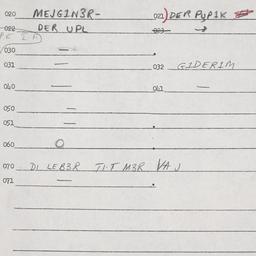 020 MEJGIN3R- 021) DER PUPIK
022 DER UPL 023 →
030 —
031 — 032 GIDERIM
040 — 041 —
050 —
051 —
060 O
070 DI LEB3R TI.T M3R VAJ
071 —